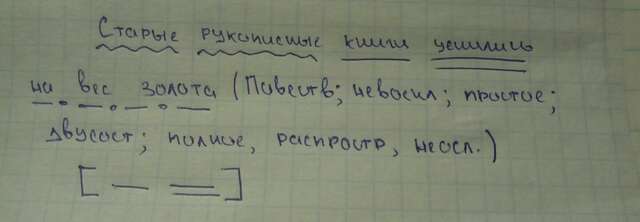 Старые рукописные книги ценились
на вес золота (Повеств; невоскл; простое;
двусост; полное, распростр, неосл.)
[— =]